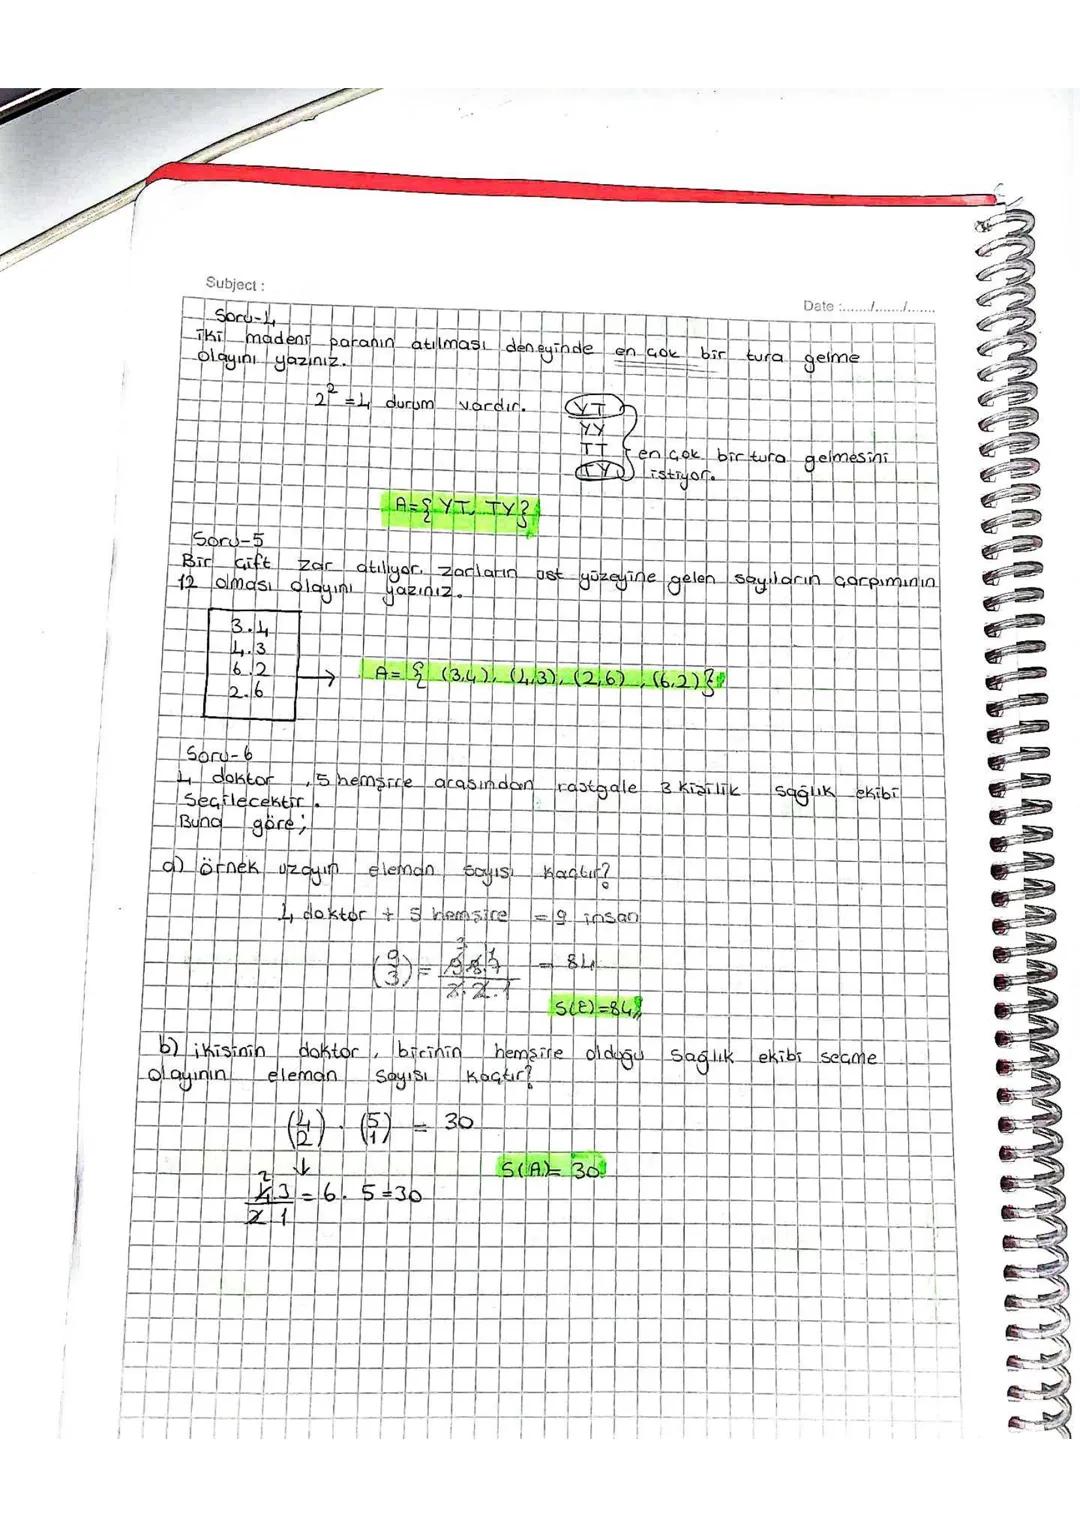 Subject :
Date :......../......../........
Soru-4
iki madeni paranın atılması deneyinde en çok bir tura gelme
olayını yazınız.
2² = 4 durum vardır.
YT
YY
TT
TY
en çok bir tura gelmesini
istiyor.
A={ YT, TY}
Soru-5
Bir çift zar atılıyor. zarların üst yüzeyine gelen sayıların çarpımının
12 olması olayını yazınız.
3.4
4.3
6.2
2.6
→ A= { (3,4), (4,3), (2,6), (6,2)}
Soru-6
4 doktor , 5 hemşire arasından rastgale 3 kişilik sağlık ekibi
seçilecektir.
Buna göre;
a) örnek uzayın eleman sayısı kaçtır?
4 doktor + 5 hemşire = 9 insan
(9 3) = 9.8.7 / 3.2.1 = 84
S(E)=84
b) ikisinin doktor , birinin hemşire olduğu sağlık ekibi seçme
olayının eleman sayısı kaçtır?
(4 2) . (5 1) = 30
↓
S(A)= 30
4.3 / 2.1 = 6 . 5=30